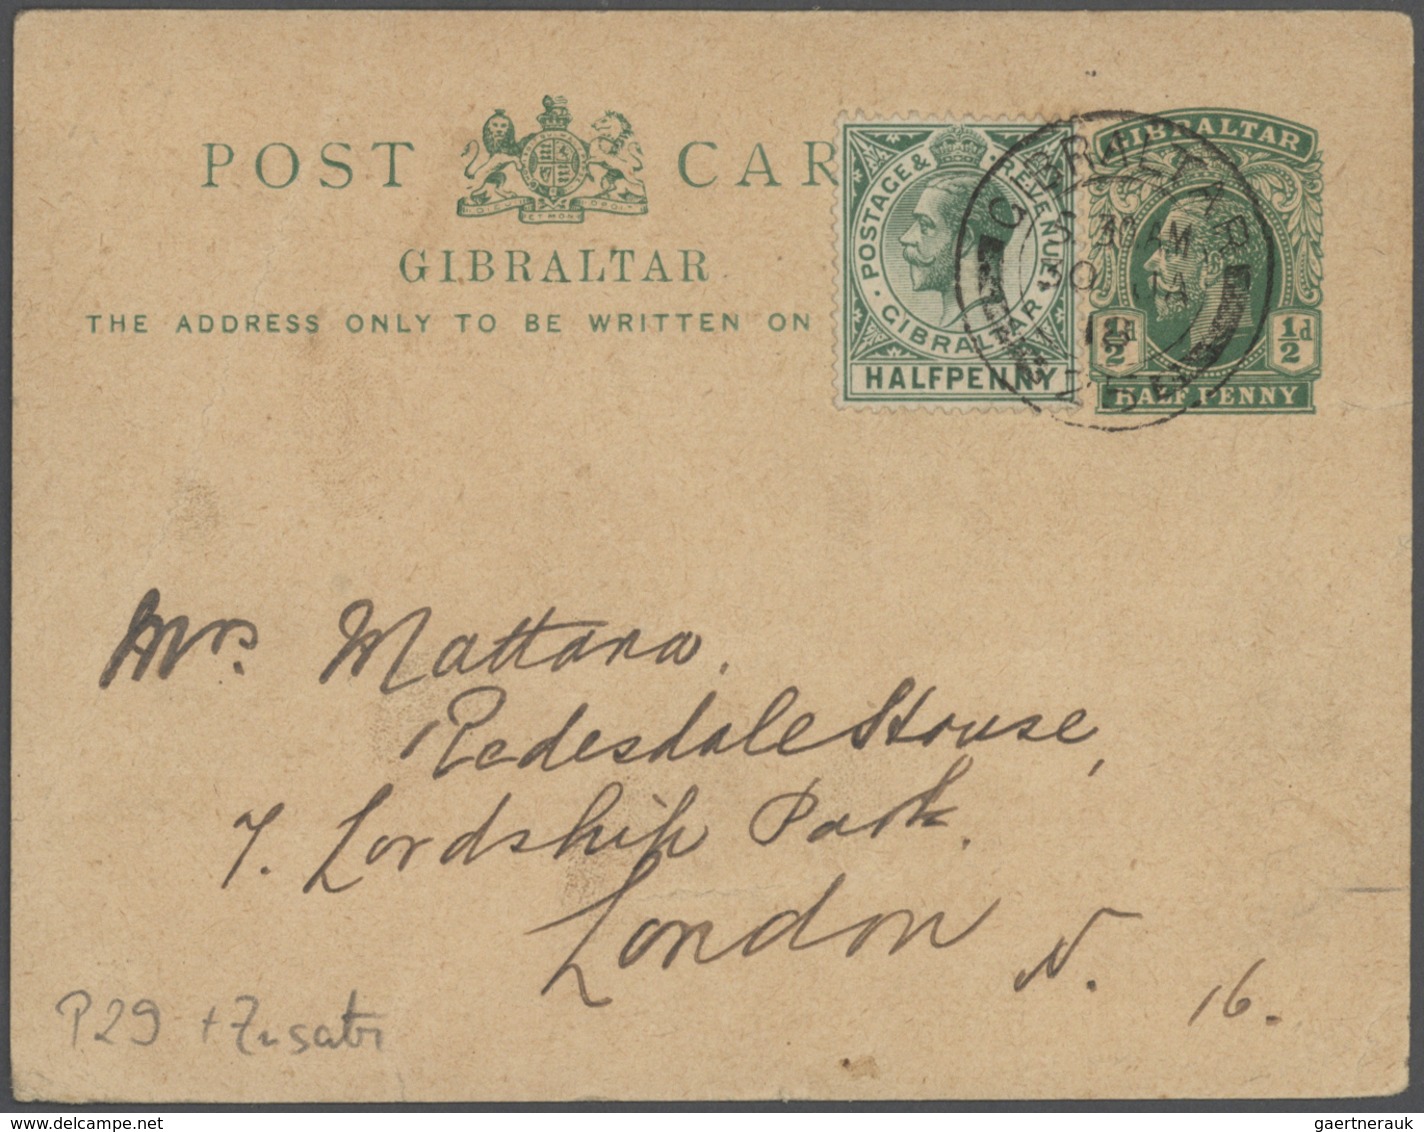 POST CAR
GIBRALTAR
THE ADDRESS ONLY TO BE WRITTEN ON
POSTAGE & REVENUE
GIBRALTAR
HALFPENNY
GIBRALTAR
30 AM
30 JA
18
GIBRALTAR
½d ½d
HALF PENNY
Mrs. Mattana.
Redesdale House,
7. Lordship Park.
London N. 16.
P29 + Zusatz
www.delcampe.net
gaertnerauk